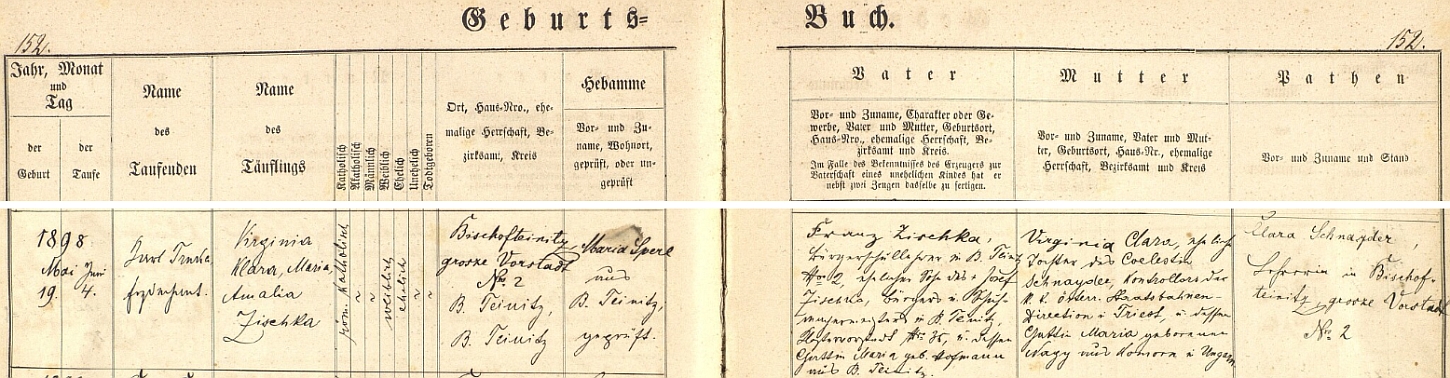 Geburts=
Buch.
152.
152.
Jahr, Monat
und
Tag
der
Geburt
der
Taufe
Name
des
Taufenden
Name
des
Täuflings
Katholisch
Akatholisch
Männlich
Weiblich
Ehelich
Unehelich
Todtgeboren
Ort, Haus-Nro., ehe-
malige Herrschaft, Be-
zirksamt, Kreis
Hebamme
Vor- und Zu-
name, Wohnort,
geprüft, oder un-
geprüft
Vater
Vor- und Zuname, Charakter oder Ge-
werbe, Vater und Mutter, Geburtsort,
Haus-Nro., ehemalige Herrschaft, Be-
zirksamt und Kreis.
Im Falle des Bekenntnisses des Erzeugers zur
Vaterschaft eines unehelichen Kindes hat er
nebst zwei Zeugen dasselbe zu fertigen.
Mutter
Vor- und Zuname, Vater und Mut-
ter, Geburtsort, Haus-Nr., ehemalige
Herrschaft, Bezirksamt und Kreis
Pathen
Vor- und Zuname und Stand
1898
Mai
19.
Juni
4.
Karl
Erzdechant.
Virginia
Klara, Maria,
Amalia
Zischka
röm. katholisch
weiblich
ehelich
Bischofteinitz
grosze Vorstadt
Nro 2
B. Teinitz,
B. Teinitz
Maria Sperl
aus
B. Teinitz,
geprüft.
Franz Zischka,
Bürgerschullehrer in B. Teinitz
Nro 2, ehelicher Sohn des + Josef
Zischka, Bürgers u. Schuh-
machermeisters in B. Teinitz,
Vorstadt Nro 35, u. dessen
Gattin Maria geb. Hofmann
aus B. Teinitz.
Virginia Clara, eheliche
Tochter des Coelestin
Schnayder, Kontrollors der
k. k. österr. Staatsbahnen-
Direction in Triest, u. dessen
Gattin Maria geborenen
Nagy aus Komorn in Ungarn
Clara Schnayder,
Lehrerin in Bischof-
teinitz, grosze Vorstadt
Nro 2